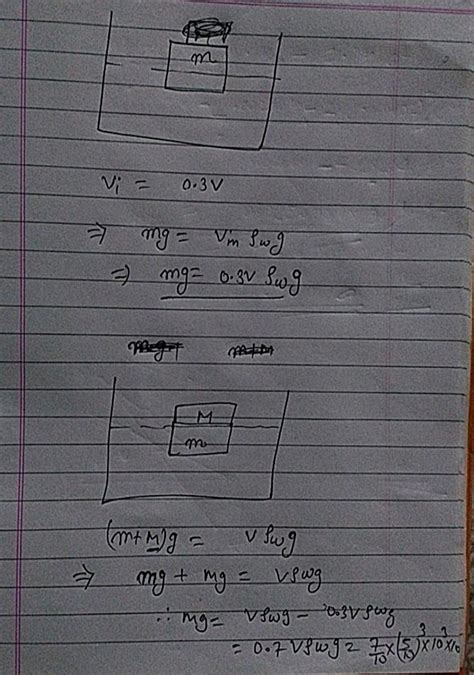 m
Vi = 0.3V
⇒ mg = Vim ρw g
⇒ mg = 0.3V ρw g
M
m
(m+M)g = Vρwg
⇒ mg + Mg = Vρwg
∴ Mg = Vρwg - 0.3Vρwg
= 0.7Vρwg = 7/10 × (5/10)³ × 10³ × 10